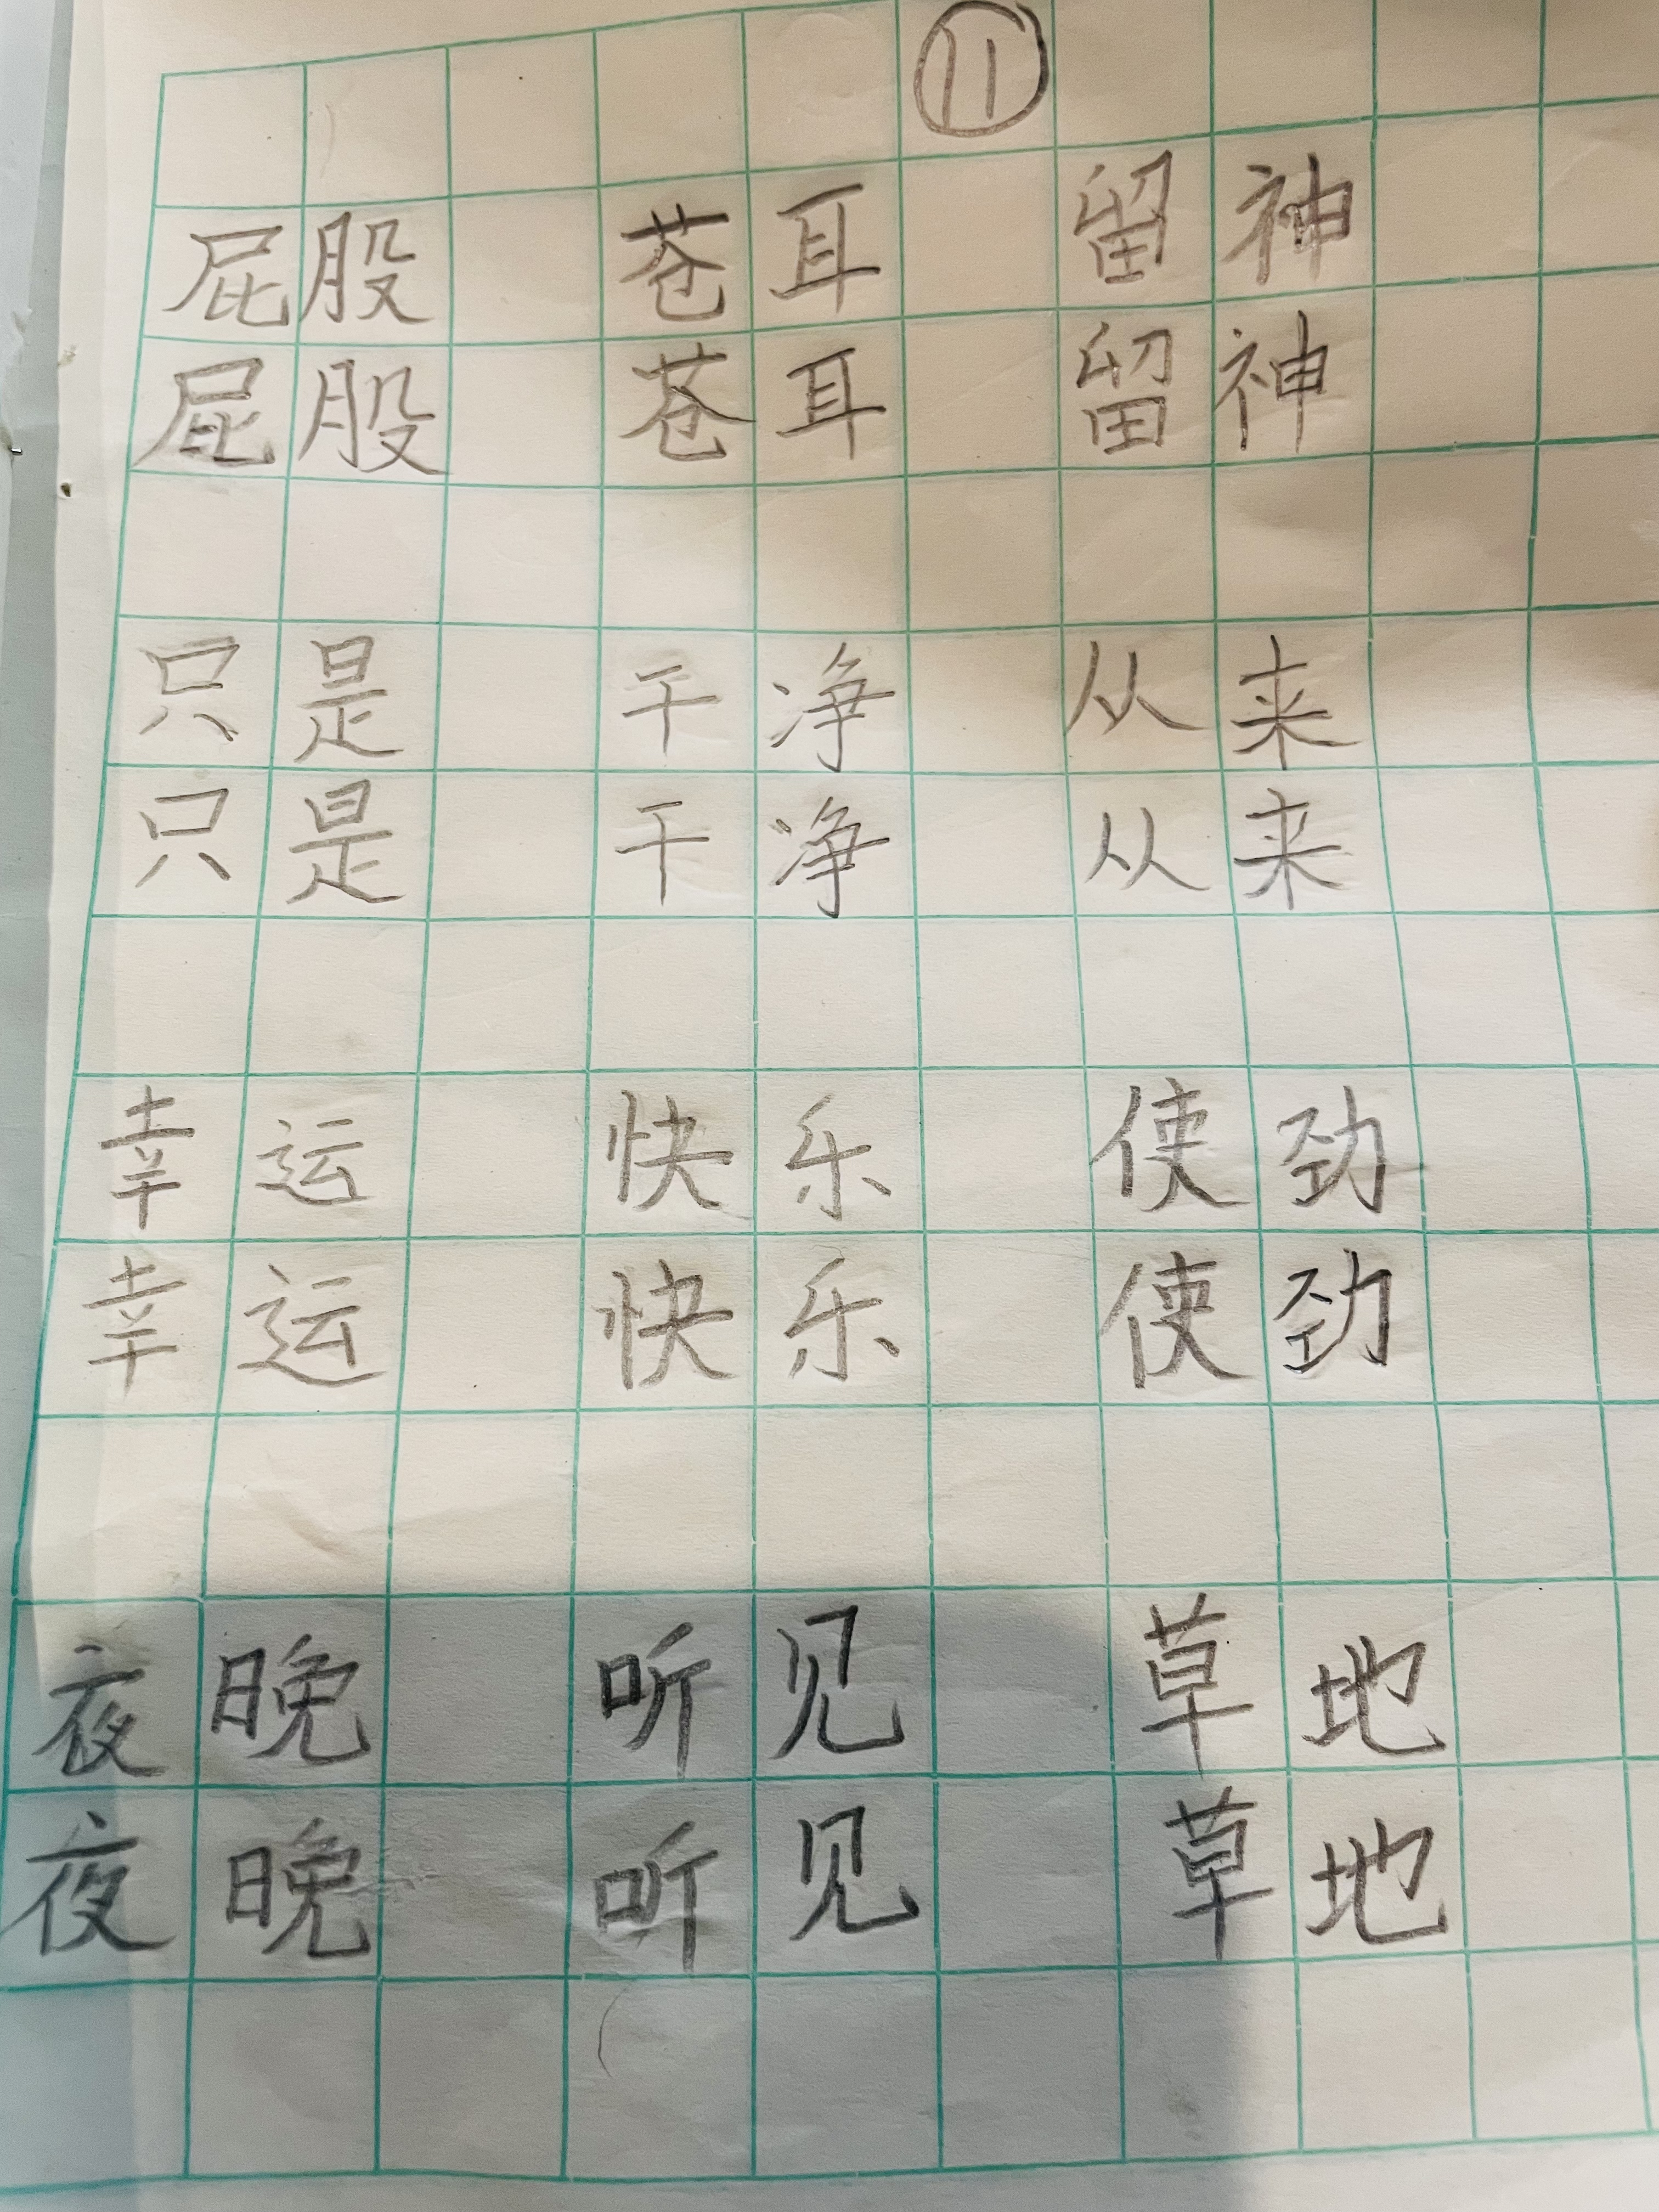 11
屁股 苍耳 留神
屁股 苍耳 留神
只是 干净 从来
只是 干净 从来
幸运 快乐 使劲
幸运 快乐 使劲
夜晚 听见 草地
夜晚 听见 草地